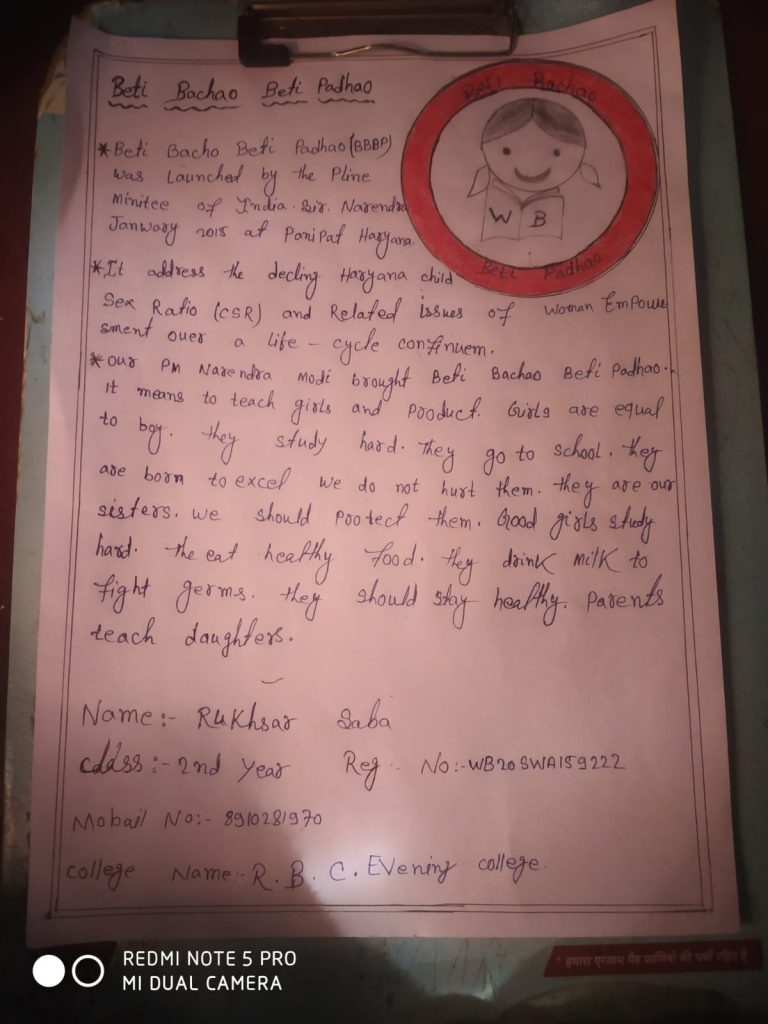 Beti Bachao Beti Padhao
Beti Bachao
W B
Beti Padhao
* Beti Bacho Beti Padhao (BBBP)
was Launched by the Pline
Minitee of India. Sir. Narendra
Janwary 2015 at PaniPat Haryana.
* It address the decling Haryana child
Sex Ratio (CSR) and Related issues of Woman EmPowe
sment over a life - cycle continuem.
* our PM Narendra Modi brought Beti Bachao Beti Padhao.
It means to teach girls and Poduct. Girls are equal
to boy. they study hard. They go to school. they
are born to excel we do not hurt them. they are our
sisters. we should Potect them. Good girls study
hard. the eat healthy food. they drink milk to
fight germs. they should stay healthy. Parents
teach daughters.
Name:- RuKhsar Saba
class:- 2nd Year Reg. No:- WB20SWA159222
Mobail No:- 8910281970
college Name:- R. B. C. Evening college.
REDMI NOTE 5 PRO
MI DUAL CAMERA
* हमारा एग्जाम पैड प्राणियों की चर्बी रहित है